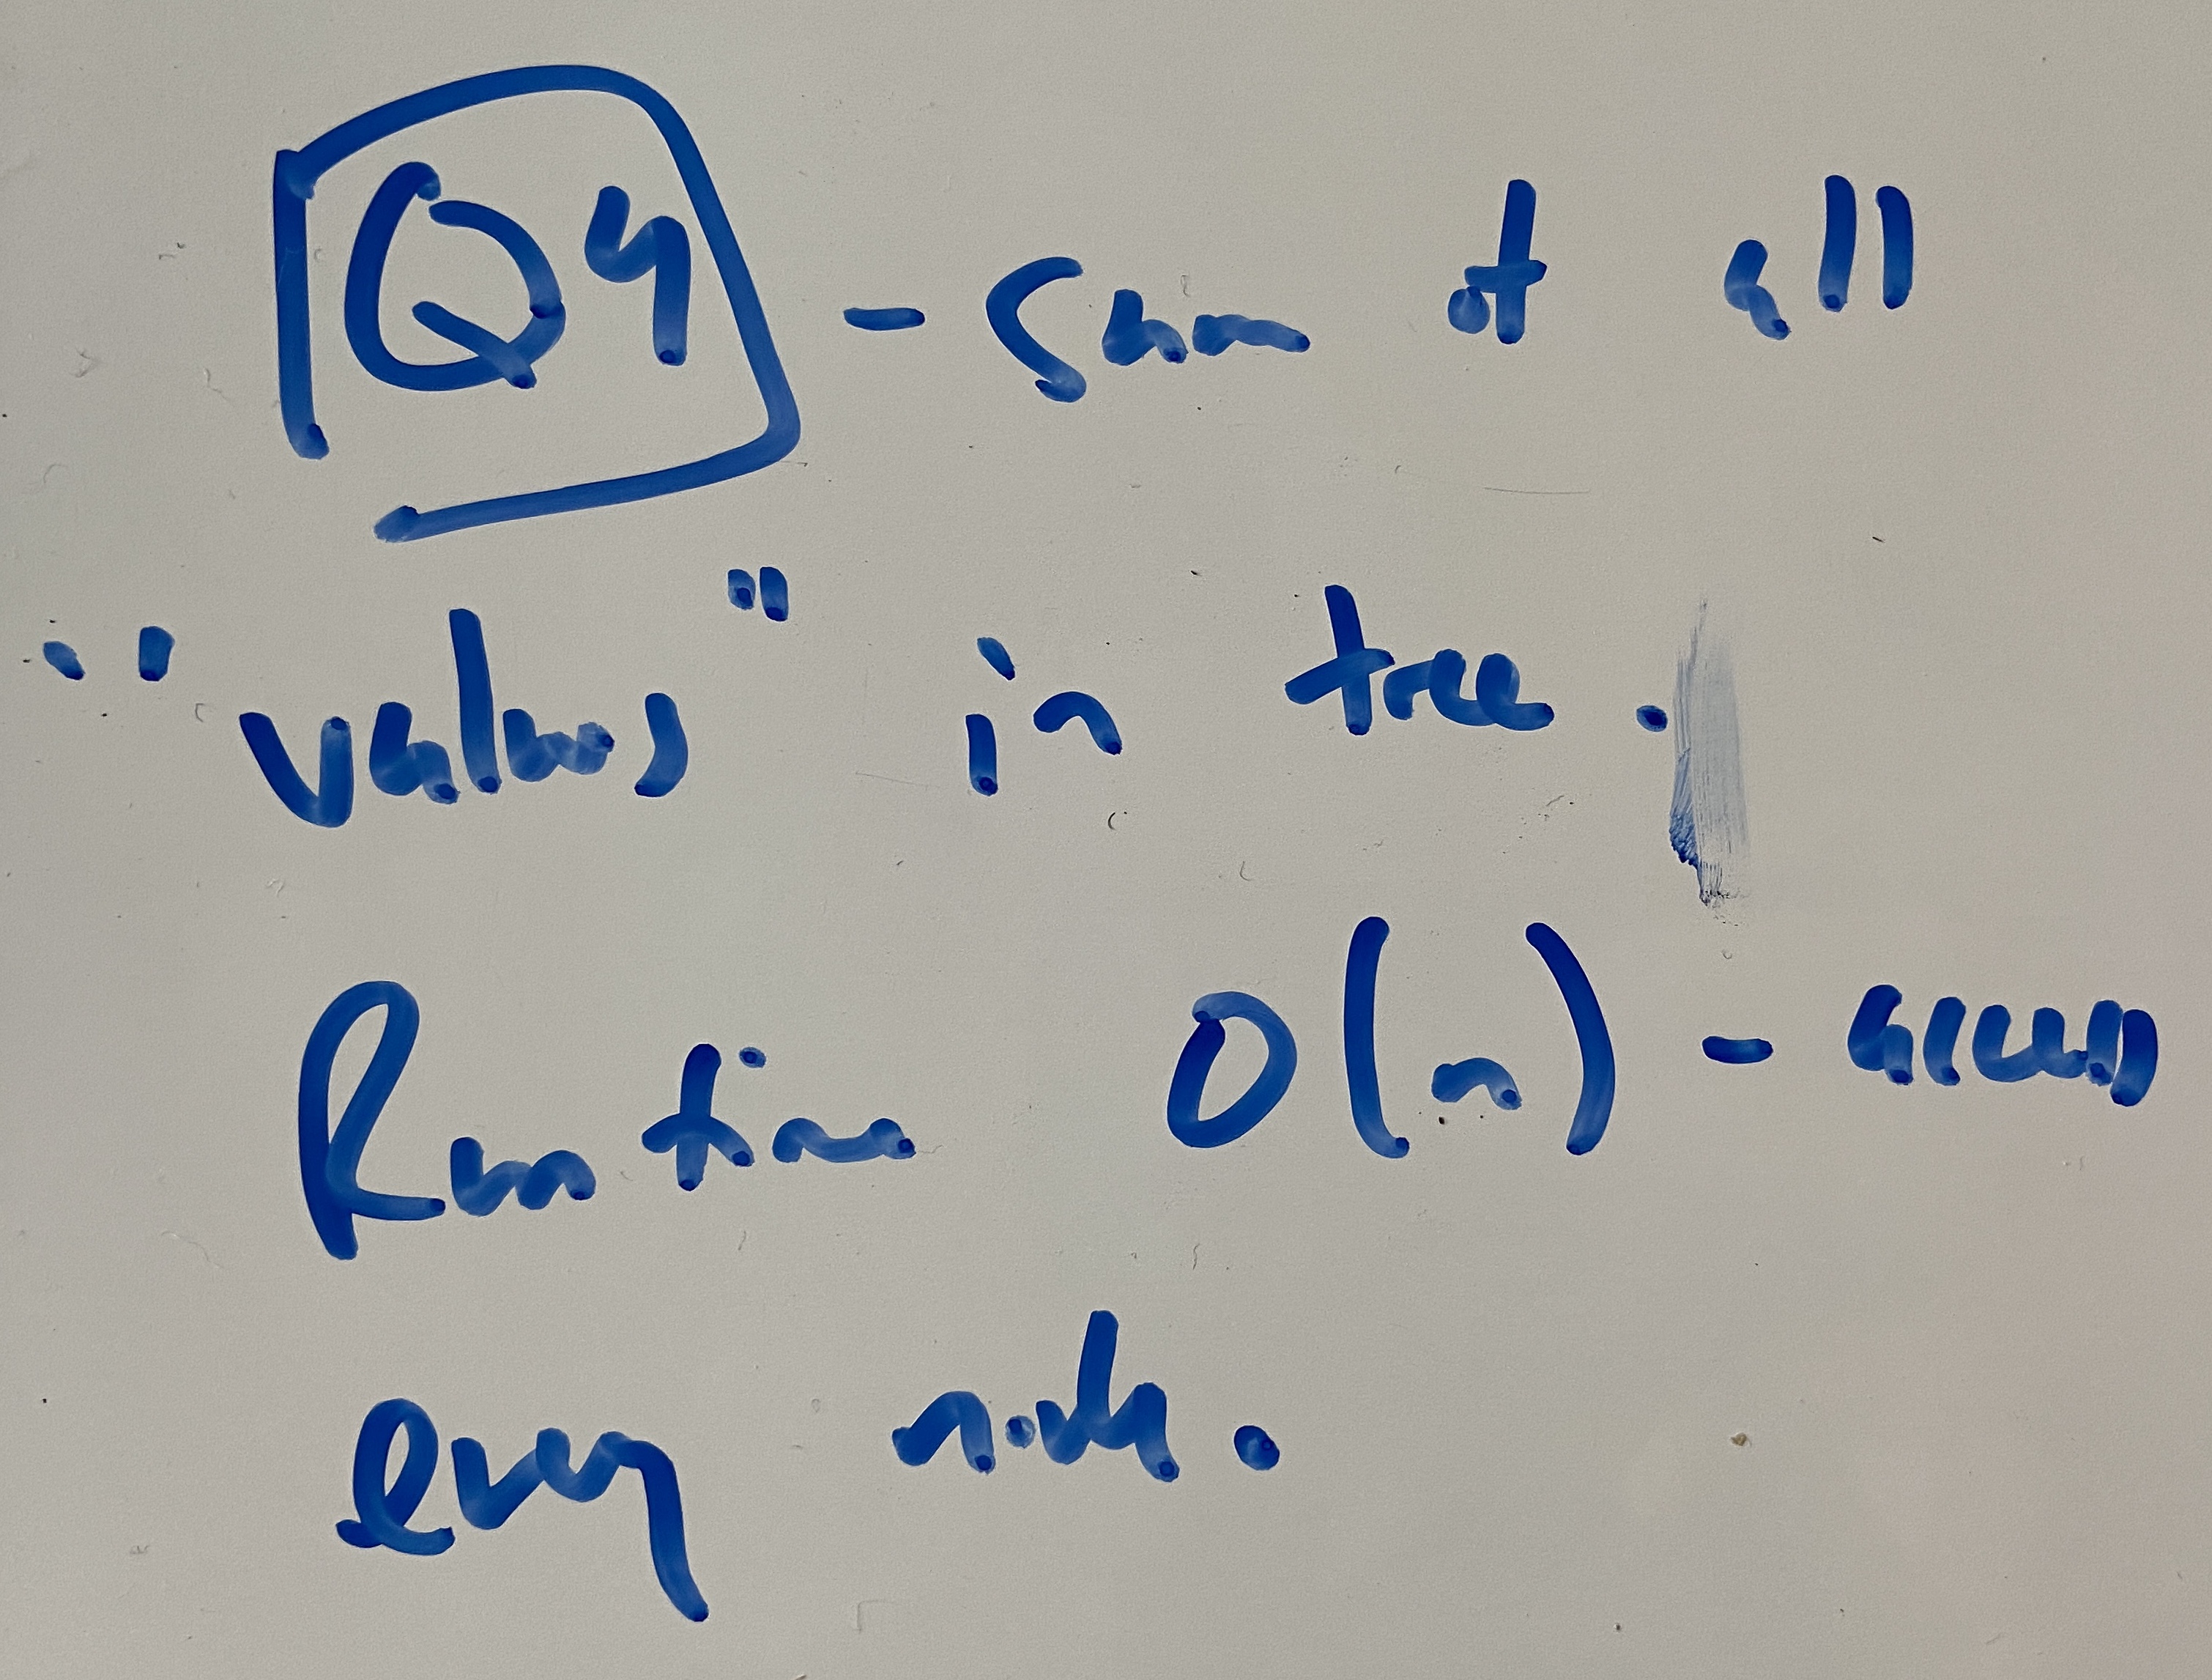 Q4 - Sum of all
"values" in tree.
Runtime O(n) - access
every node.